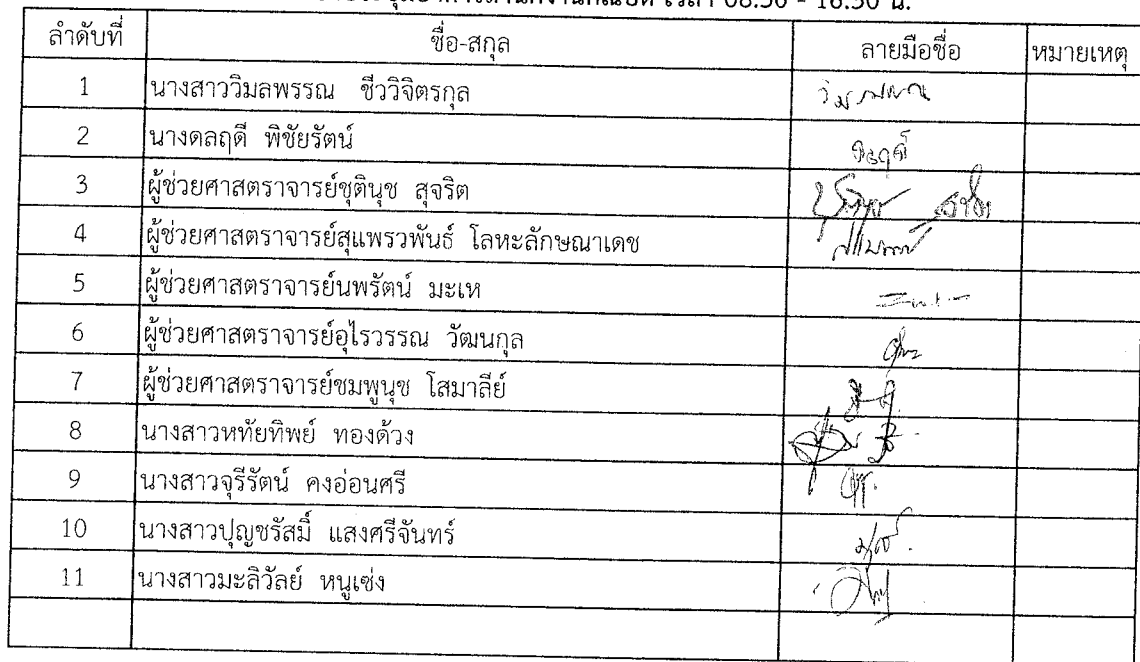 08.30 - 16.30 น.
ลำดับที่ ชื่อ-สกุล ลายมือชื่อ หมายเหตุ
1 นางสาววิมลพรรณ ชีววิจิตรกุล วิมลพรรณ
2 นางดลฤดี พิชัยรัตน์ ดลฤดี
3 ผู้ช่วยศาสตราจารย์ชุตินุช สุจริต
4 ผู้ช่วยศาสตราจารย์สุแพรวพันธ์ โลหะลักษณาเดช
5 ผู้ช่วยศาสตราจารย์นพรัตน์ มะเห
6 ผู้ช่วยศาสตราจารย์อุไรวรรณ วัฒนกุล
7 ผู้ช่วยศาสตราจารย์ชมพูนุช โสมาลีย์
8 นางสาวหทัยทิพย์ ทองด้วง
9 นางสาวจุรีรัตน์ คงอ่อนศรี
10 นางสาวปุญชรัสมิ์ แสงศรีจันทร์
11 นางสาวมะลิวัลย์ หนูเซ่ง